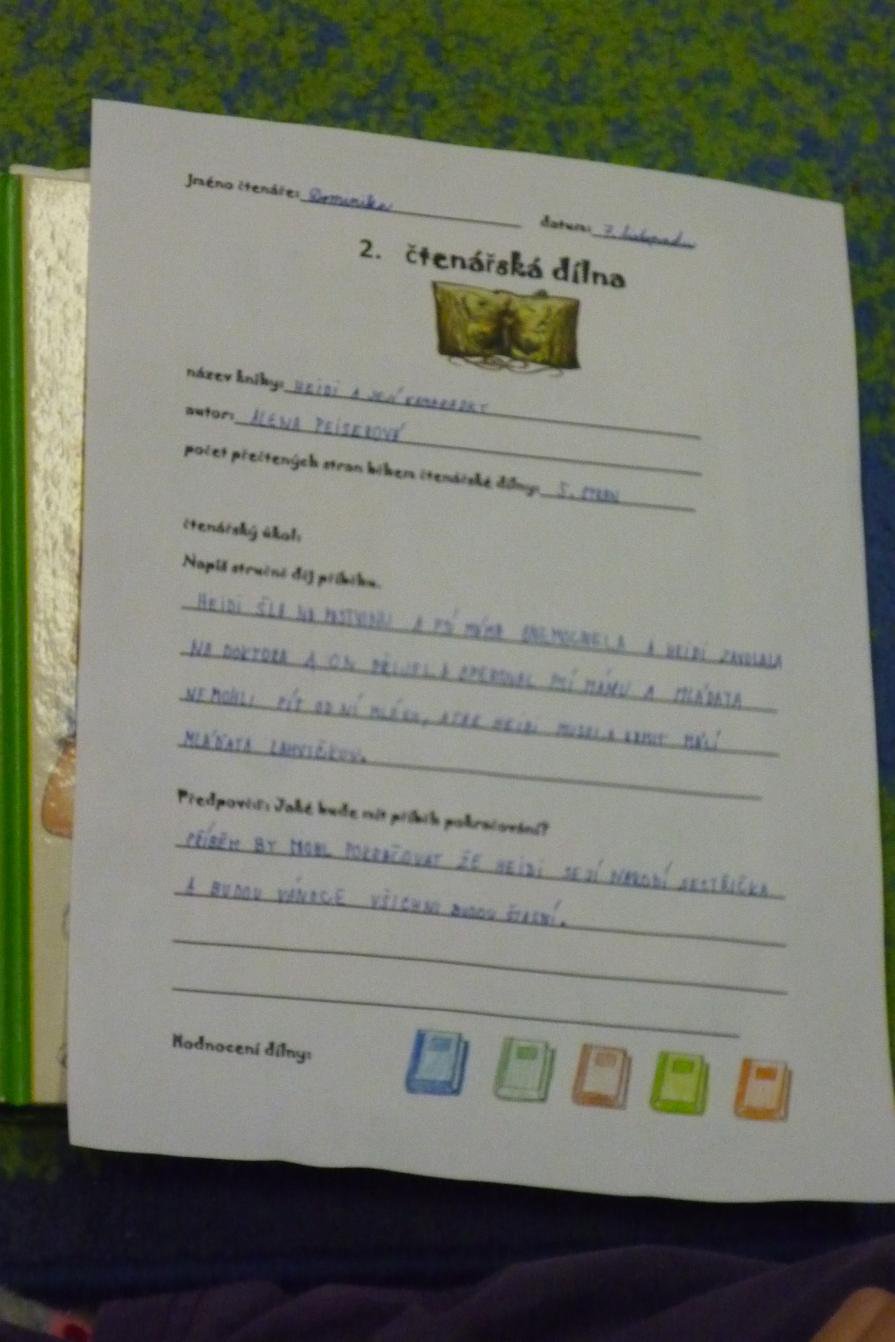 Jméno čtenáře: Dominika datum: 7. listopadu
2. čtenářská dílna
název knihy: HEIDI A JEJÍ KAMARÁDKY
autor: ALENA PEISEROVÁ
počet přečtených stran během čtenářské dílny: 5. STRAN
čtenářský úkol:
Napiš stručně děj příběhu.
HEIDI ŠLA NA PASTVINU A PSÍ MÁMA ONEMOCNĚLA A HEIDI ZAVOLALA
NA DOKTORA A ON PŘIJEL A OPEROVAL PSÍ MÁMU A MLÁĎATA
NEMOHLI PÍT OD NÍ MLÉKO, A TAK HEIDI MUSELA KRMIT MALÍ
MLÁĎATA LAHVIČKOU.
Předpověď: Jaké bude mít příběh pokračování?
PŘÍBĚH BY MOHL POKRAČOVAT ŽE HEIDI SE JÍ NARODÍ SESTŘIČKA
A BUDOU VÁNOCE VŠICHNI BUDOU ŠŤASNÍ.
Hodnocení dílny: